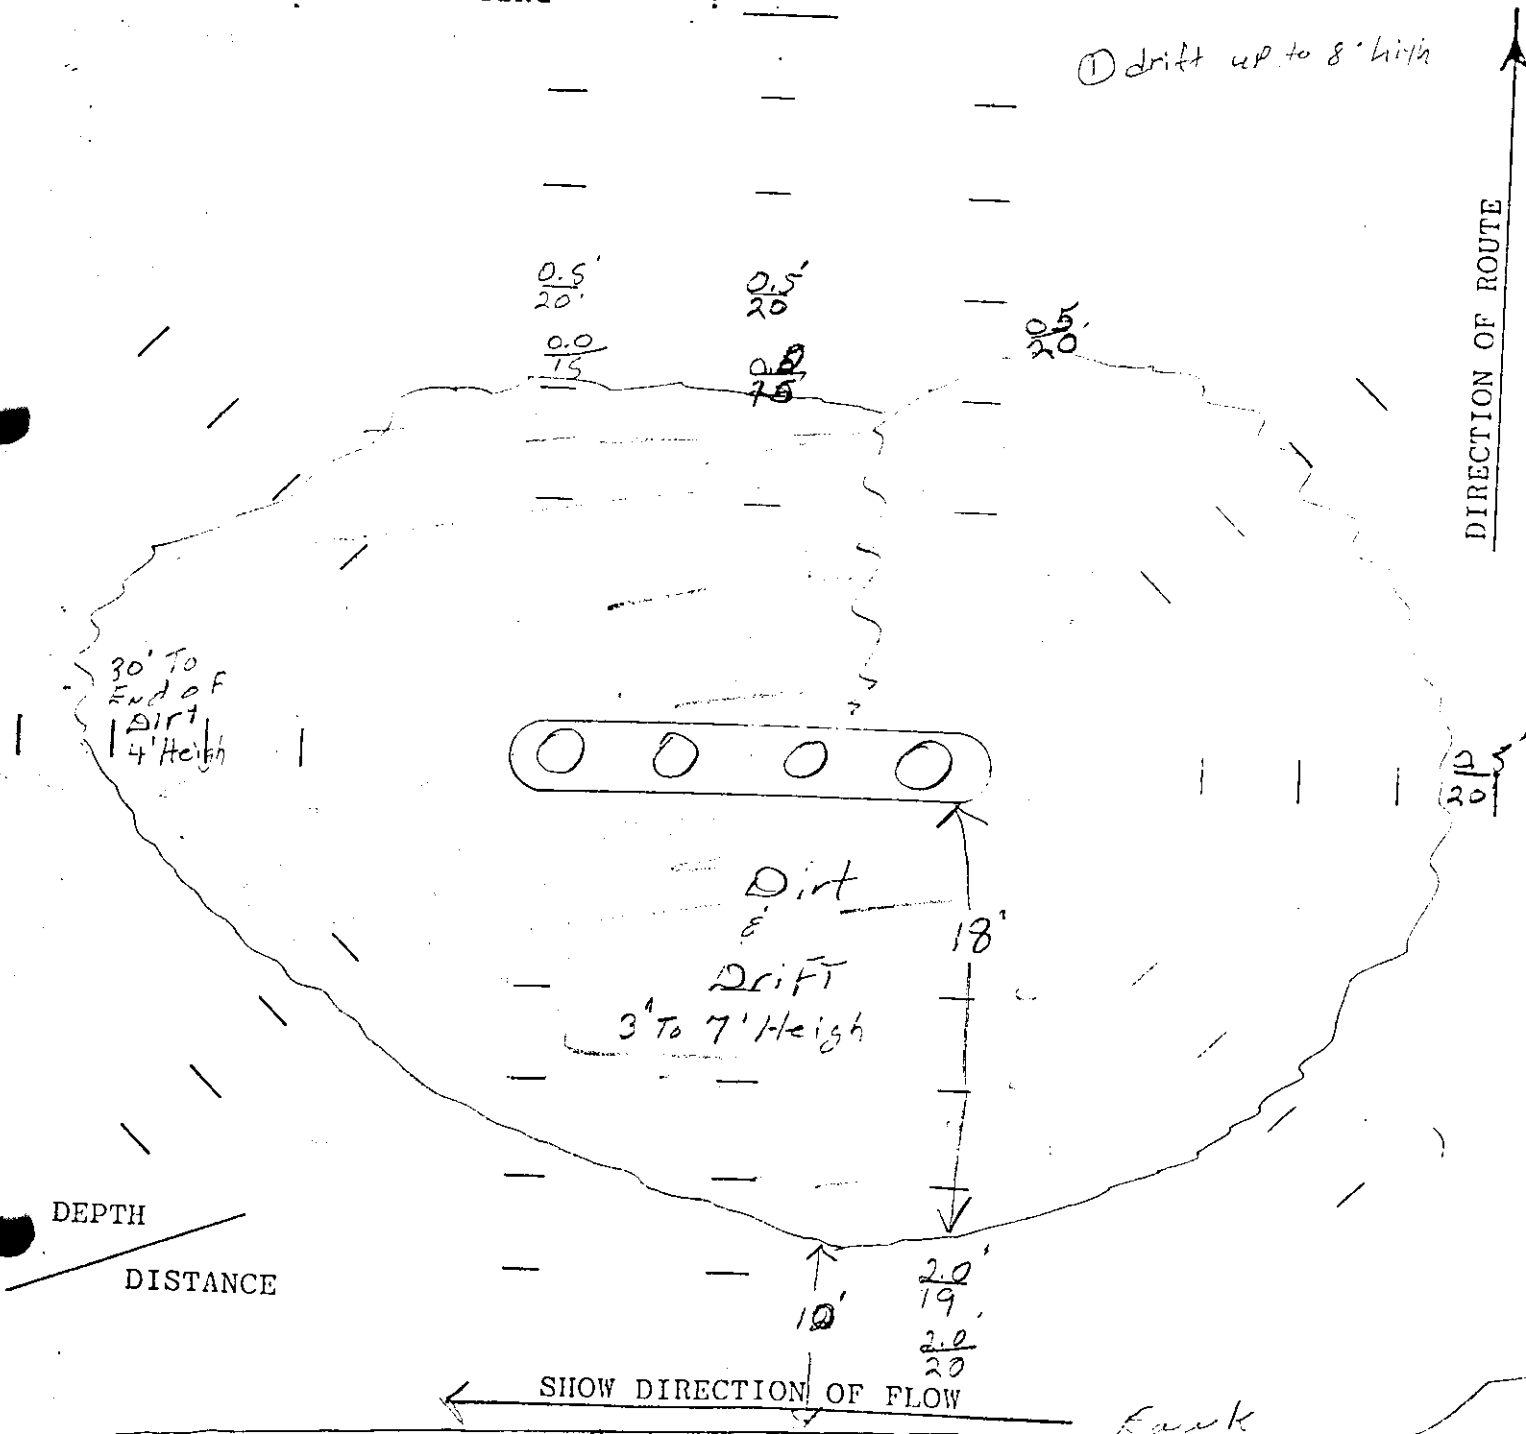 ① drift up to 8' high
DIRECTION OF ROUTE
0.5'
20'
0.5'
20
0.5'
20
0.0
15
0.0
15
30' To
End oF
Dirt
4' Heigh
20
Dirt
&
DriFT
3' To 7' Heigh
18'
DEPTH
DISTANCE
10'
2.0'
19
2.0'
20
SHOW DIRECTION OF FLOW